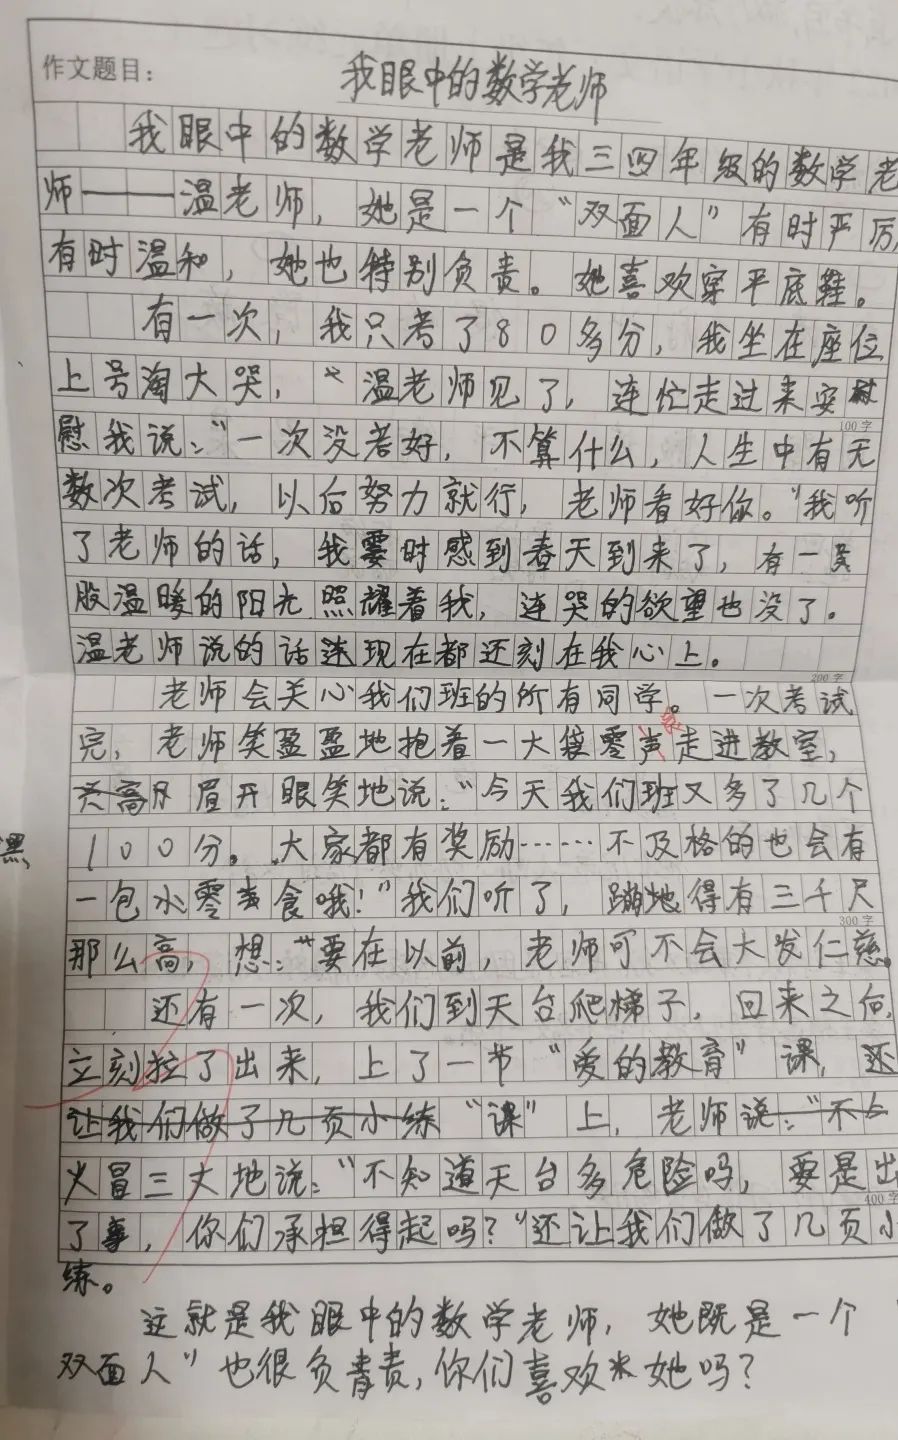 作文题目：
我眼中的数学老师
我眼中的数学老师是我三四年级的数学老
师——温老师，她是一个“双面人”有时严厉，
有时温和，她也特别负责。她喜欢穿平底鞋。
有一次，我只考了80多分，我坐在座位
上号淘大哭，温老师见了，连忙走过来安
慰我说：“一次没考好，不算什么，人生中有无
100字
数次考试，以后努力就行，老师看好你。”我听
了老师的话，我霎时感到春天到来了，有一
股温暖的阳光照耀着我，连哭的欲望也没了。
温老师说的话连现在都还刻在我心上。
200字
老师会关心我们班的所有同学。一次考试
完，老师笑盈盈地抱着一大袋零声走进教室，
眉开眼笑地说：“今天我们班又多了几个
100分。大家都有奖励……不及格的也会有
黑
一包小零食哦！”我们听了，蹦地得有三千尺
300字
那么高，想：“要在以前，老师可不会大发仁慈。
还有一次，我们到天台爬梯子，回来之后，
立刻拉了出来，上了一节“爱的教育”课，还
让我们做了几页小练“课”上，老师说：“不
火冒三丈地说：“不知道天台多危险吗，要是出
400字
了事，你们承担得起吗？”还让我们做了几页小
练。
这就是我眼中的数学老师，她既是一个“
双面人”也很负责，你们喜欢她吗？